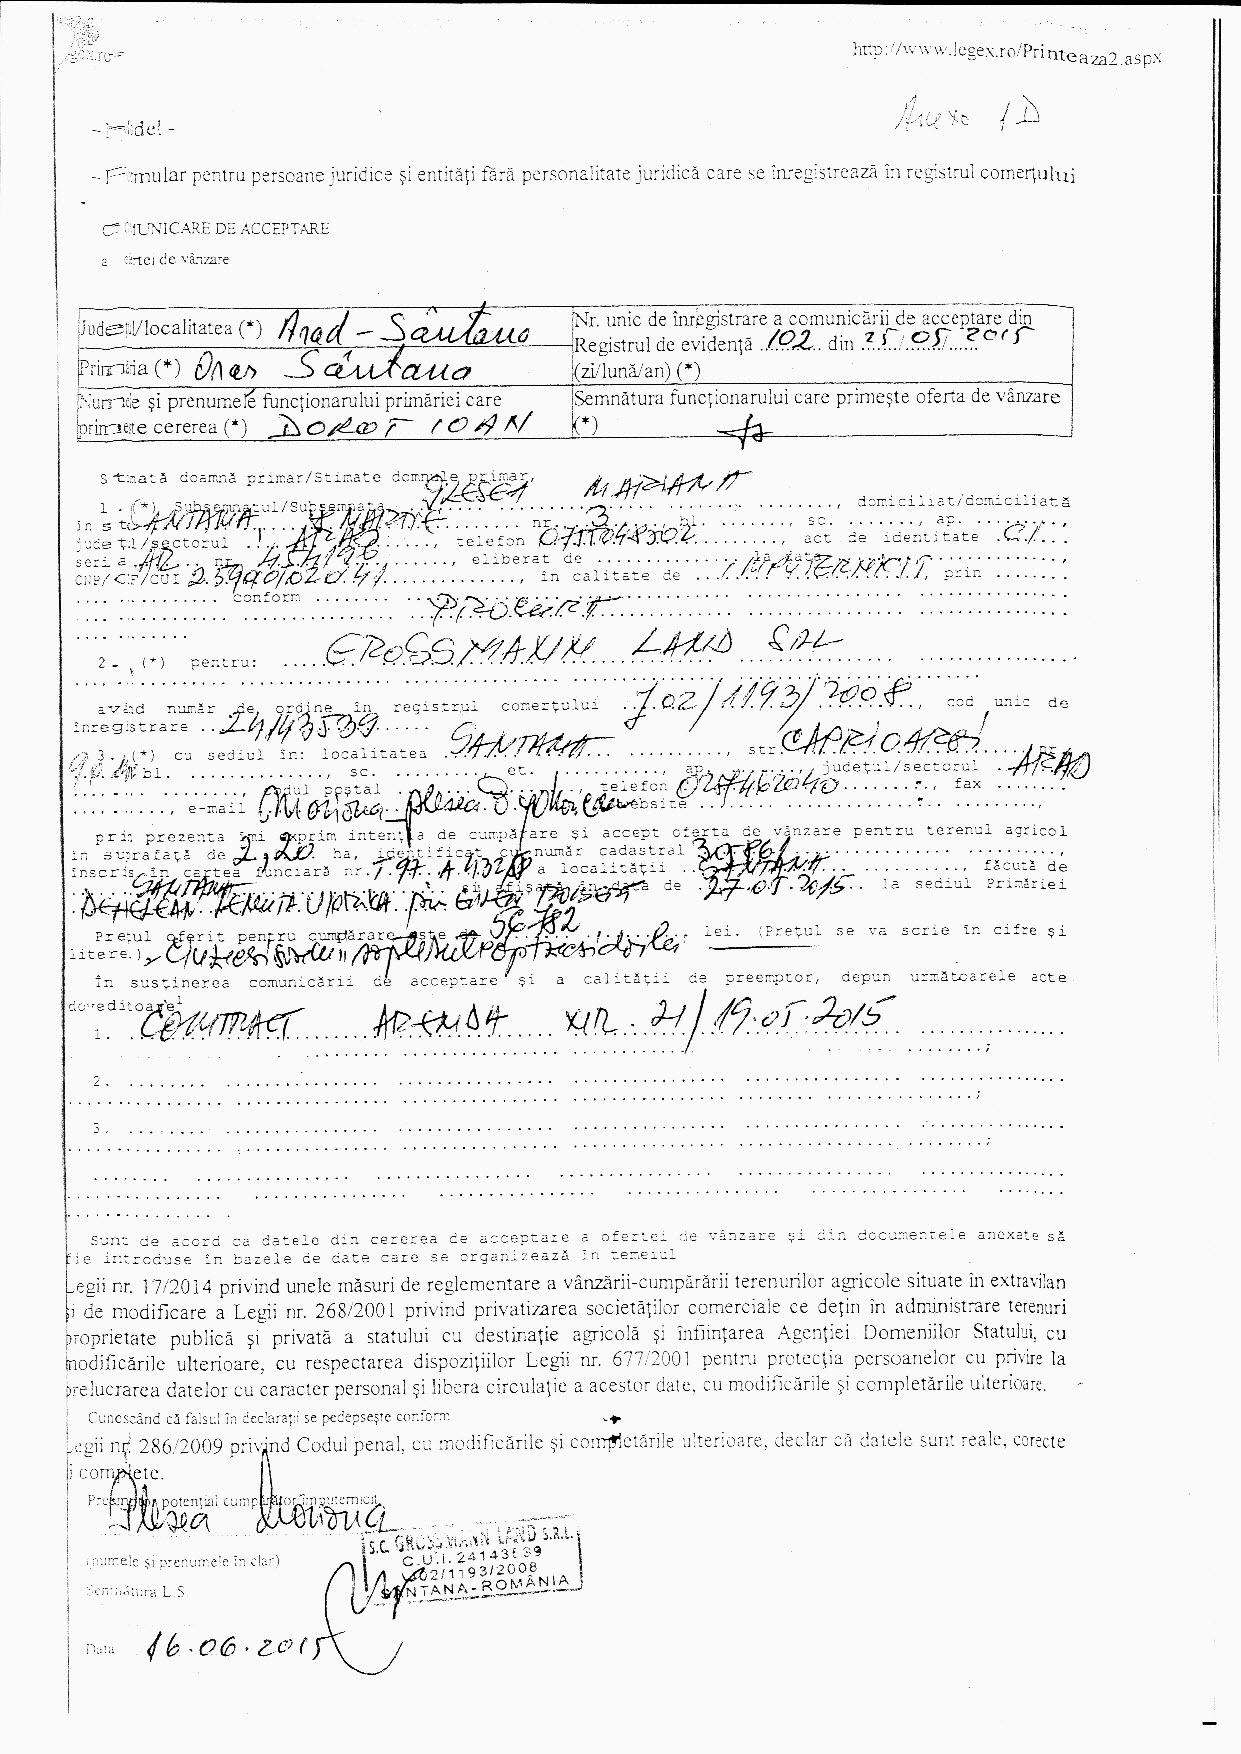 http://www.legex.ro/Printeaza2.aspx
Anexa 1D
- Model -
- Formular pentru persoane juridice și entități fără personalitate juridică care se înregistrează în registrul comerțului
COMUNICARE DE ACCEPTARE
a ofertei de vânzare
Județul/localitatea (*) Arad - Sântana
Nr. unic de înregistrare a comunicării de acceptare din
Registrul de evidență 102 din 25/05/2015
Primăria (*) Oraș Sântana
(zi/lună/an) (*)
Numele și prenumele funcționarului primăriei care
primește cererea (*) DOROT IOAN
Semnătura funcționarului care primește oferta de vânzare
(*)
Stimată doamnă primar/Stimate domnule primar,
1. (*) Subsemnatul/Subsemnata, PLESEA MARIANA, domiciliat/domiciliată
în SANTANA, nr. 3, bl. ........, sc. ........, ap. ........,
județul/sectorul ARAD, telefon ........, act de identitate C.I.
seria AR nr. ........, eliberat de ........
CNP/CIF/CUI ........, în calitate de IMPUTERNICIT, prin ........
conform ........
PROCURA
2. (*) pentru: GROSSMANN LAND SRL
având număr de ordine în registrul comerțului J02/1193/2008, cod unic de
înregistrare 24143539
3. (*) cu sediul în: localitatea SANTANA, str. CAPRIOAREI
bl. ........, sc. ........, et. ........, ap. ........, județul/sectorul ARAD
codul poștal ........, telefon 0257462040, fax ........
........, e-mail ........ website ........,
prin prezenta îmi exprim intenția de cumpărare și accept oferta de vânzare pentru terenul agricol
în suprafață de 2,20 ha, identificat cu număr cadastral ........,
înscris în cartea funciară nr. ........ a localității SANTANA, făcută de
........ și afișată în data de 27.05.2015 la sediul Primăriei
SANTANA
DEHELEAN
Prețul oferit pentru cumpărare este de 56782 lei. (Prețul se va scrie în cifre și
litere.)
În susținerea comunicării de acceptare și a calității de preemptor, depun următoarele acte
doveditoare:
1. CONTRACT ARENDA NR. 21/19.05.2015
........;
2. ........
........;
3. ........
........;
Sunt de acord ca datele din cererea de acceptare a ofertei de vânzare și din documentele anexate să
fie introduse în bazele de date care se organizează în temeiul
Legii nr. 17/2014 privind unele măsuri de reglementare a vânzării-cumpărării terenurilor agricole situate în extravilan
și de modificare a Legii nr. 268/2001 privind privatizarea societăților comerciale ce dețin în administrare terenuri
proprietate publică și privată a statului cu destinație agricolă și înființarea Agenției Domeniilor Statului, cu
modificările ulterioare, cu respectarea dispozițiilor Legii nr. 677/2001 pentru protecția persoanelor cu privire la
prelucrarea datelor cu caracter personal și libera circulație a acestor date, cu modificările și completările ulterioare.
Cunoscând că falsul în declarații se pedepsește conform
Legii nr. 286/2009 privind Codul penal, cu modificările și completările ulterioare, declar că datele sunt reale, corecte
și complete.
Preemptor potențial cumpărător/împuternicit
Plesea Mariana
(numele și prenumele în clar)
Semnătura L.S.
S.C. GROSSMANN LAND S.R.L.
C.U.I. 24143539
J02/1193/2008
SANTANA-ROMÂNIA
Data 16.06.2015